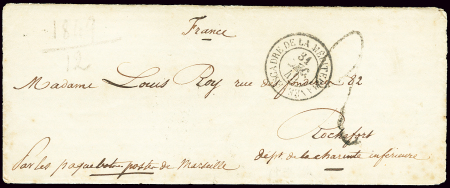 France
1849
12
ESCADRE DE LA MEDITERRANEE
31
Madame Louis Roy rue 82
Rochefort
dépt de la charente inférieure
Par les paquebots-poste de Marseille